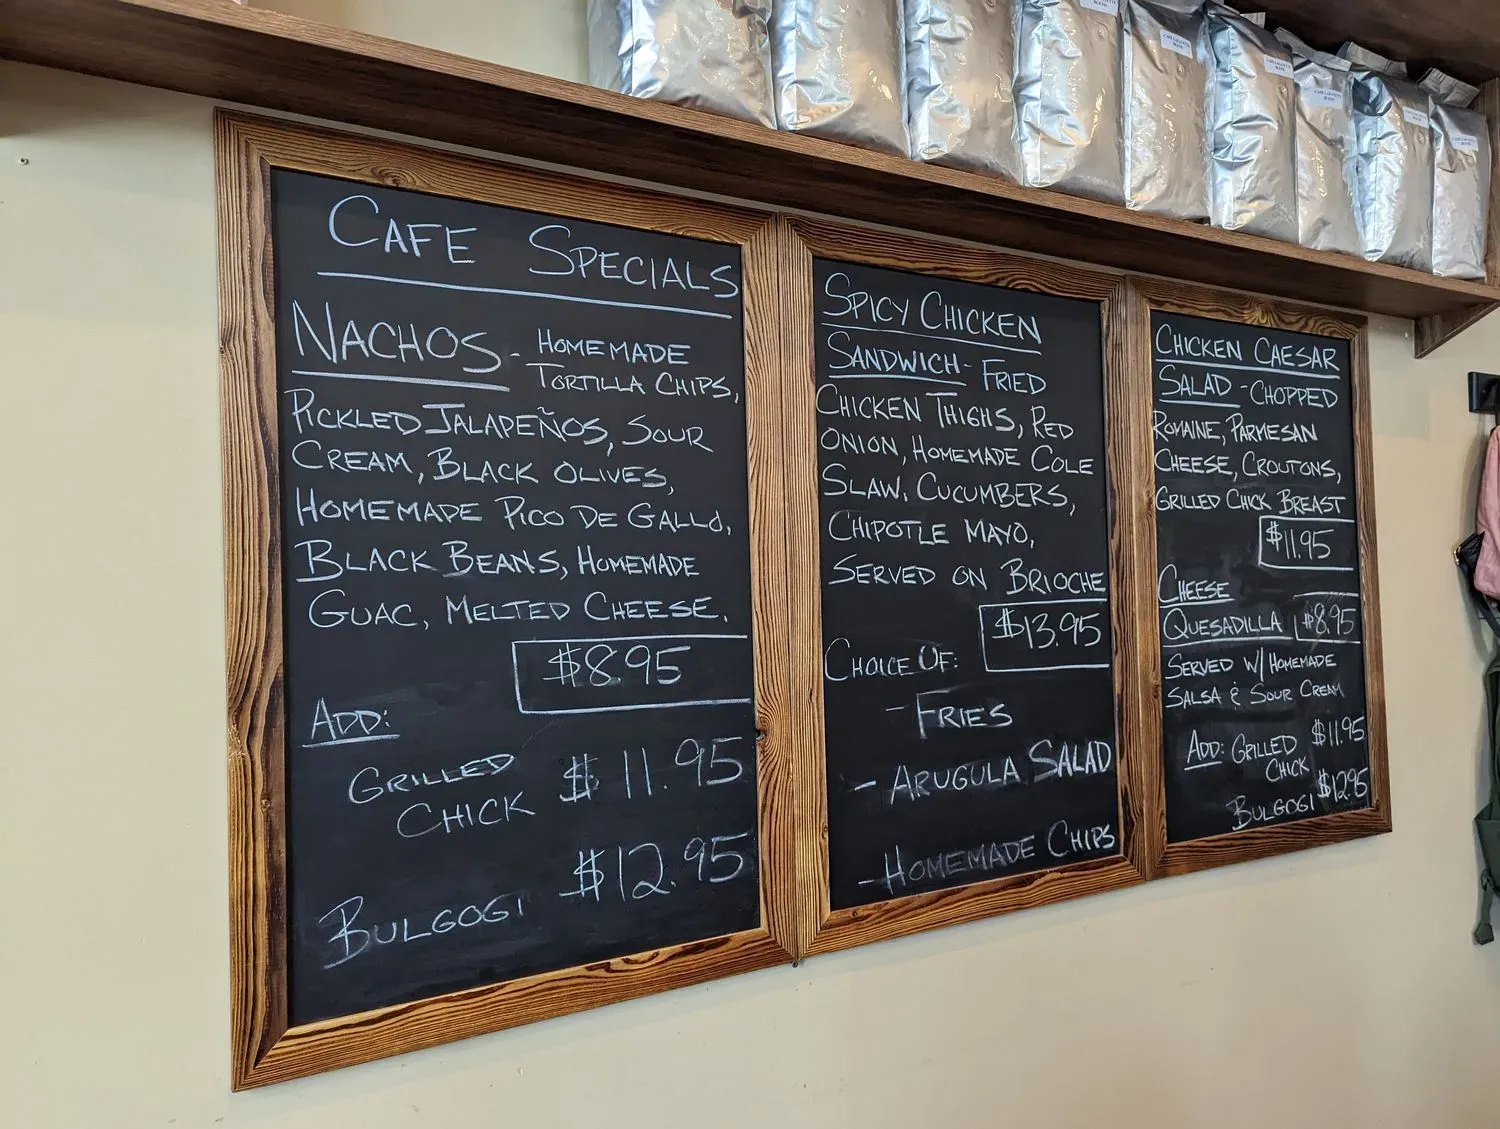 CAFE SPECIALS
NACHOS - HOMEMADE
TORTILLA CHIPS,
PICKLED JALAPEÑOS, SOUR
CREAM, BLACK OLIVES,
HOMEMADE PICO DE GALLO,
BLACK BEANS, HOMEMADE
GUAC, MELTED CHEESE.
$8.95
ADD:
GRILLED
CHICK $11.95
BULGOGI $12.95
SPICY CHICKEN
SANDWICH - FRIED
CHICKEN THIGHS, RED
ONION, HOMEMADE COLE
SLAW, CUCUMBERS,
CHIPOTLE MAYO,
SERVED ON BRIOCHE
$13.95
CHOICE OF:
- FRIES
- ARUGULA SALAD
- HOMEMADE CHIPS
CHICKEN CAESAR
SALAD - CHOPPED
ROMAINE, PARMESAN
CHEESE, CROUTONS,
GRILLED CHICK BREAST
$11.95
CHEESE
QUESADILLA $8.95
SERVED W/ HOMEMADE
SALSA & SOUR CREAM
ADD: GRILLED $11.95
CHICK
BULGOGI $12.95
CAFE LAFAYETTE
BLEND